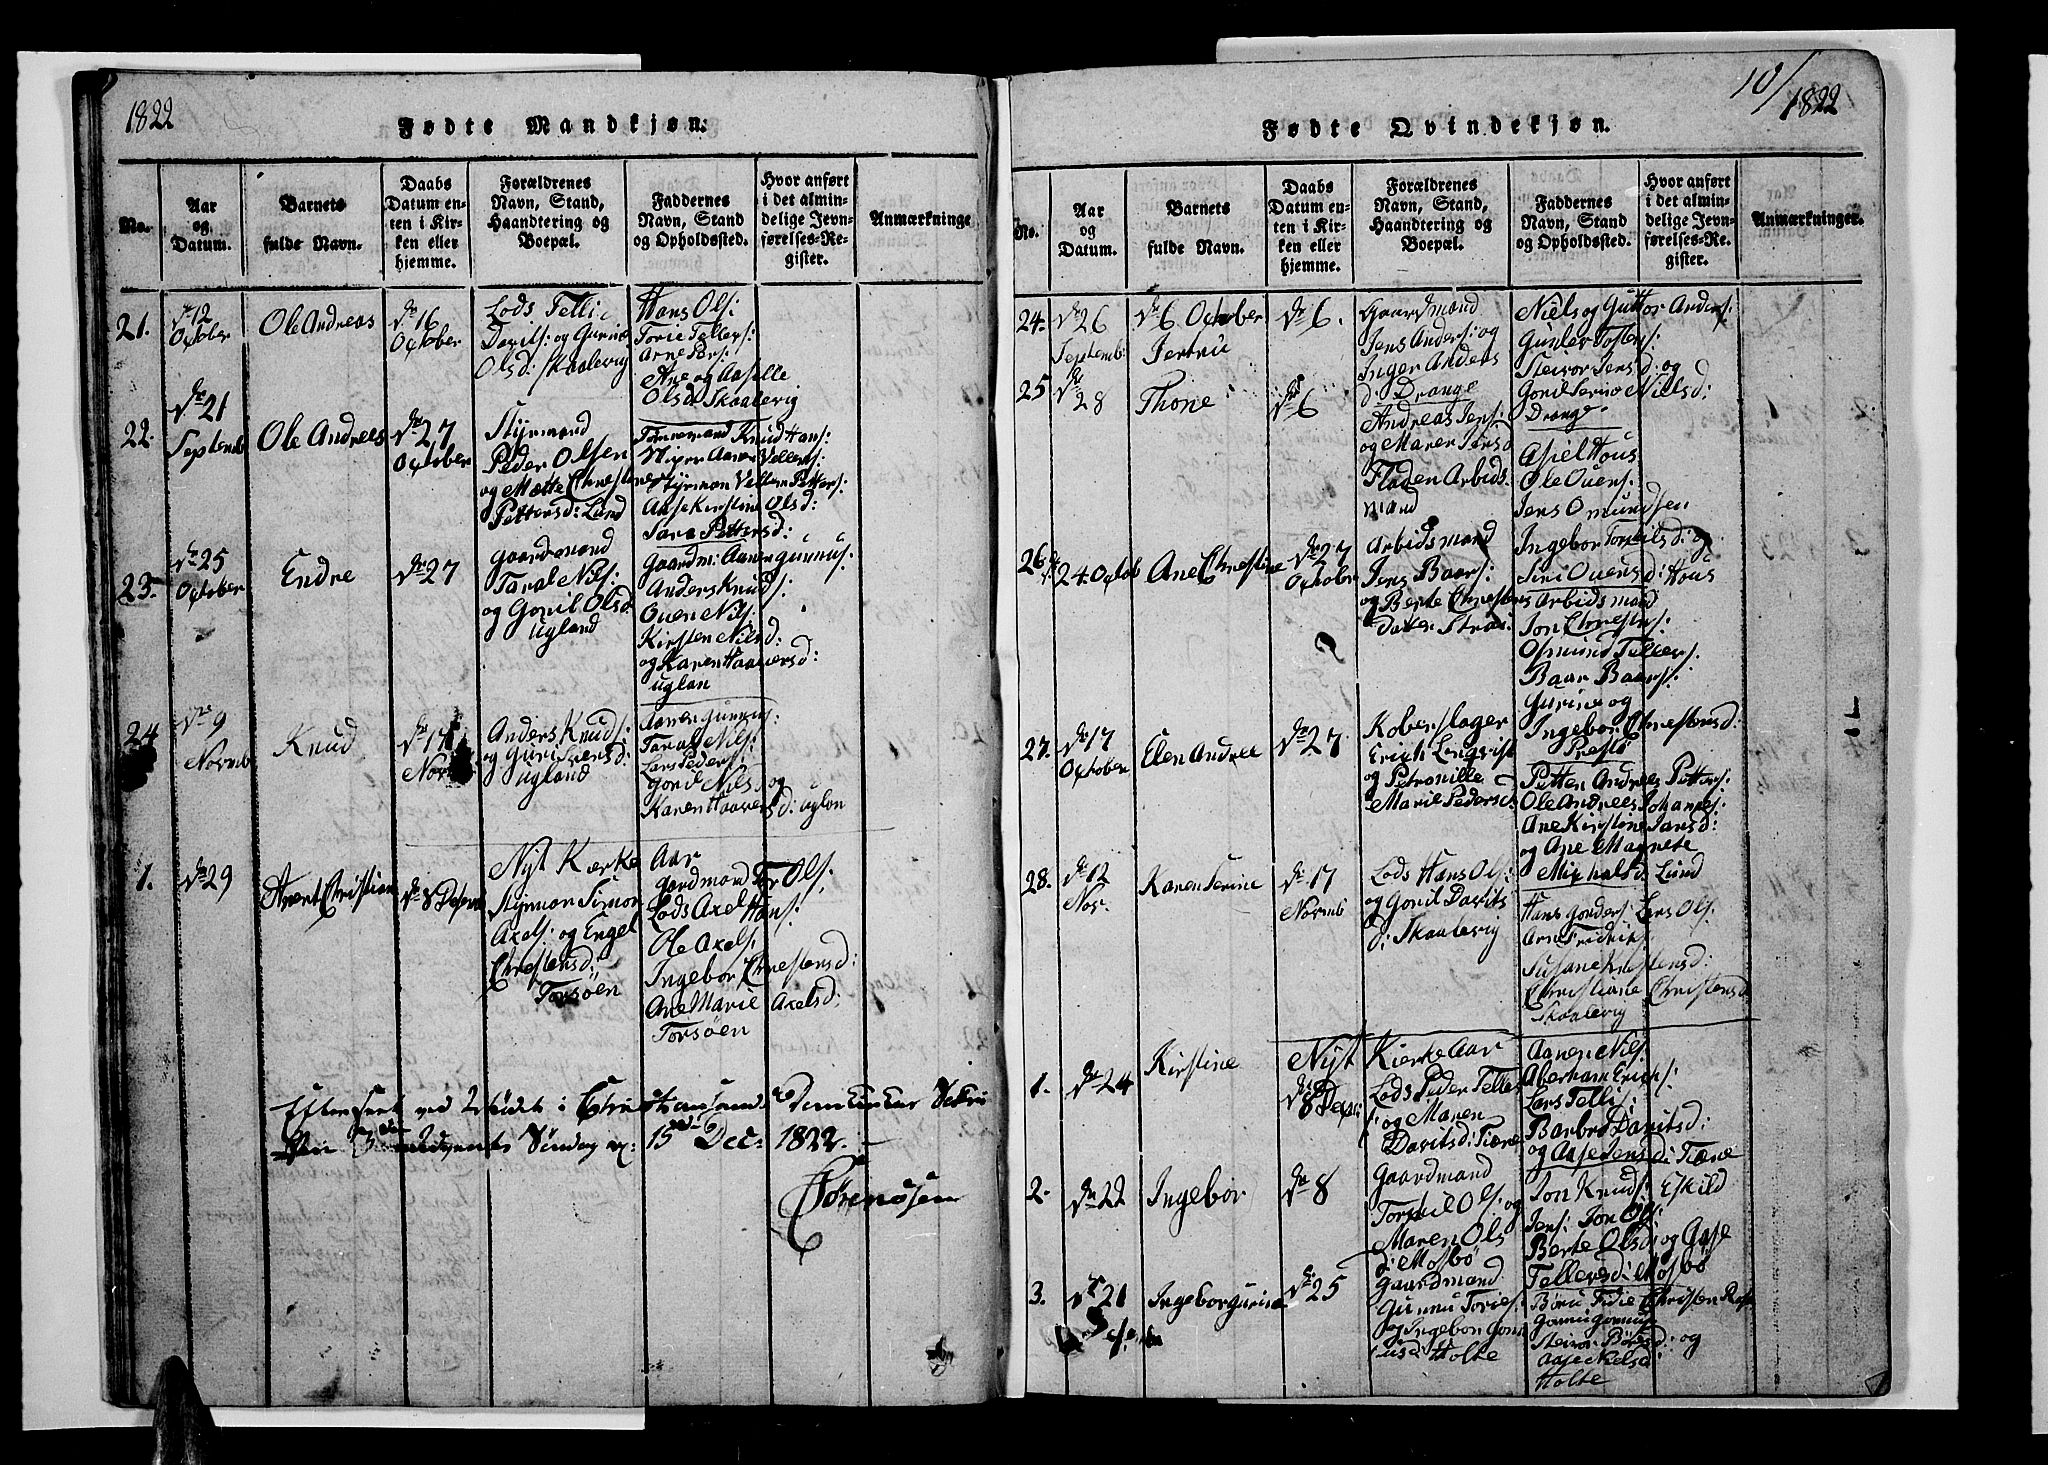 1822
Fødte Mandkjøn.
No.
Aar
og
Datum.
Barnets
fulde Navn.
Daabs
Datum en-
ten i Kir-
ken eller
hjemme.
Forældrenes
Navn, Stand,
Haandtering og
Boepæl.
Faddernes
Navn, Stand
og Opholdssted.
Hvor anført
i det almin-
delige Jevn-
førelses-Re-
gister.
Anmærkninge
21.
12
October
Ole Andreas
16
October
Lods Telli
Davits: og Gurine
Olsd: Skaalevig
Hans Ols:
Torie Tellers:
Arne Pers:
Ane og Aaselle
Olsd Skaalevig
22.
21
Septemb
Ole Andrees
27
October
Styrmand
Peder Olsen
og Mette Chrestense
Pettersd: Lund
Tømmermand Knud Hans:
Styrman Vellem Petters:
Aase Kirstine Olsd:
Sara Pettersd:
23.
25
October
Endre
27
Gaardmand
Taral Nils:
og Goril Olsd:
Ugland
Gaardm: Aanen Gunnus:
Anders Knuds:
Ouen Nils:
Kirsten Nilsd:
og Karen Haaversd:
Uglan
24
9
Novmb
Knud
17
Nov
Anders Knuds:
og Guri
Ugland
Aanen Gunnus:
Taral Nils:
Lars Peders:
Goril Nils og
Karen Haaversd: Uglan
Nyt Kerke Aar
1.
29
Anent Christian
8 Desem
Styrman Simon
Axels: og Engel
Chrestensd:
Torsøen
Gaardmand Tor Ols:
Lods Axel Hans:
Ole Axels:
Ingebor Chrestensd:
Ane Marie Axelsd:
Torsøen
Efterseet ved Mødet i Christiansand Domkirke
3die Advents Søndag 15de Dec: 1822.
Sørensen
10/
1822
Fødte Qvindekjøn.
No.
Aar
og
Datum.
Barnets
fulde Navn.
Daabs
Datum en-
ten i Kir-
ken eller
hjemme.
Forældrenes
Navn, Stand,
Haandtering og
Boepæl.
Faddernes
Navn, Stand
og Opholdssted.
Hvor anført
i det almin-
delige Jevn-
førelses-Re-
gister.
Anmærkninger.
24.
26
Septemb:
6 October
Jertrue
6.
Gaardmand
Jens Anders: og
Inger Anders
d: Drange
Niels og Guttor Anders:
Gunler Tostens:
Steivor Jensd: og
Goril Serine Nielsd:
Drange
25
28
Thone
6
Andreas Jens:
og Maren Jensd
Floden Arbids
mand
Asiel Hous
Ole Ouens:
Jens Omundsen
Ingebor Torkilsd: og
Siri Ouensd: Hous
26
24. Octob
Ane Chrestine
27
October
Arbidsmand
Jens Baars:
og Berte Chrestens
Dater Strai.
Arbidsmand
Jon Chrestns:
Osmund Tellers:
Baar Baars:
Gurine og
Ingebor Chrestensd:
Prestø
27.
17
October
Elen Andree
27
Koberslager
Erich Lenqvist
og Petronille
Marie Pedersd:
Petten Andrees Petters:
Ole Andrees Johannes:
Ane Kirstine Jansd:
og Ane Magnete
Michalsd Lund
28.
12
Nov.
Karen Serine
17
Novmb
Lods Hans Ols:
og Goril Davits
d: Skaalevig
Hans Gonders: Lars Ols:
Arn Fridrik
Susane Krestensd:
Christiane Christensd
Skaalevig
Nyt Kierke Aar
1.
24
Kirstine
8 Desem:
Lods Peder Teller
s: og Maren
Davitsd: Tiæne
Aanen Nils:
Aberham Erichs:
Lars Telli:
Barbro Davitsd:
og Aase Jensd: Tiæne
2.
22
Ingebor
8
Gaardmand
Torkil Ols: og
Maren Ols
d: Mosbø
Jon Knuds: Eskild
Jens: Jon Ols:
Berte Olsd: og Gase
Tellersd: Mosbø
3.
21
Ingeborgurine
25
Gaardmand
Gunnu Tories:
og Ingebor Gonn
Holte
Børu Fidie Christen
Steivor Børesd: og
Aase Kelsd:
Holte